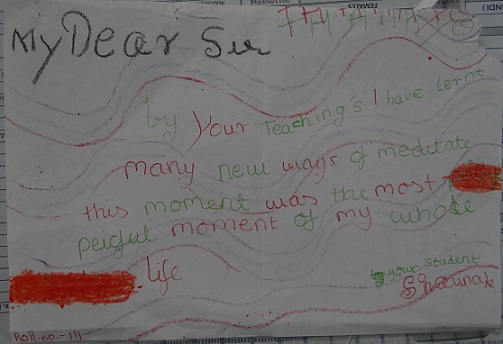 My Dear Sir
by Your Teaching's I have Lernt
many new ways of meditate
this moment was the most
peigful moment of my whole
life
by your Student
Shaunak
Roll.no.-111
FEMALES